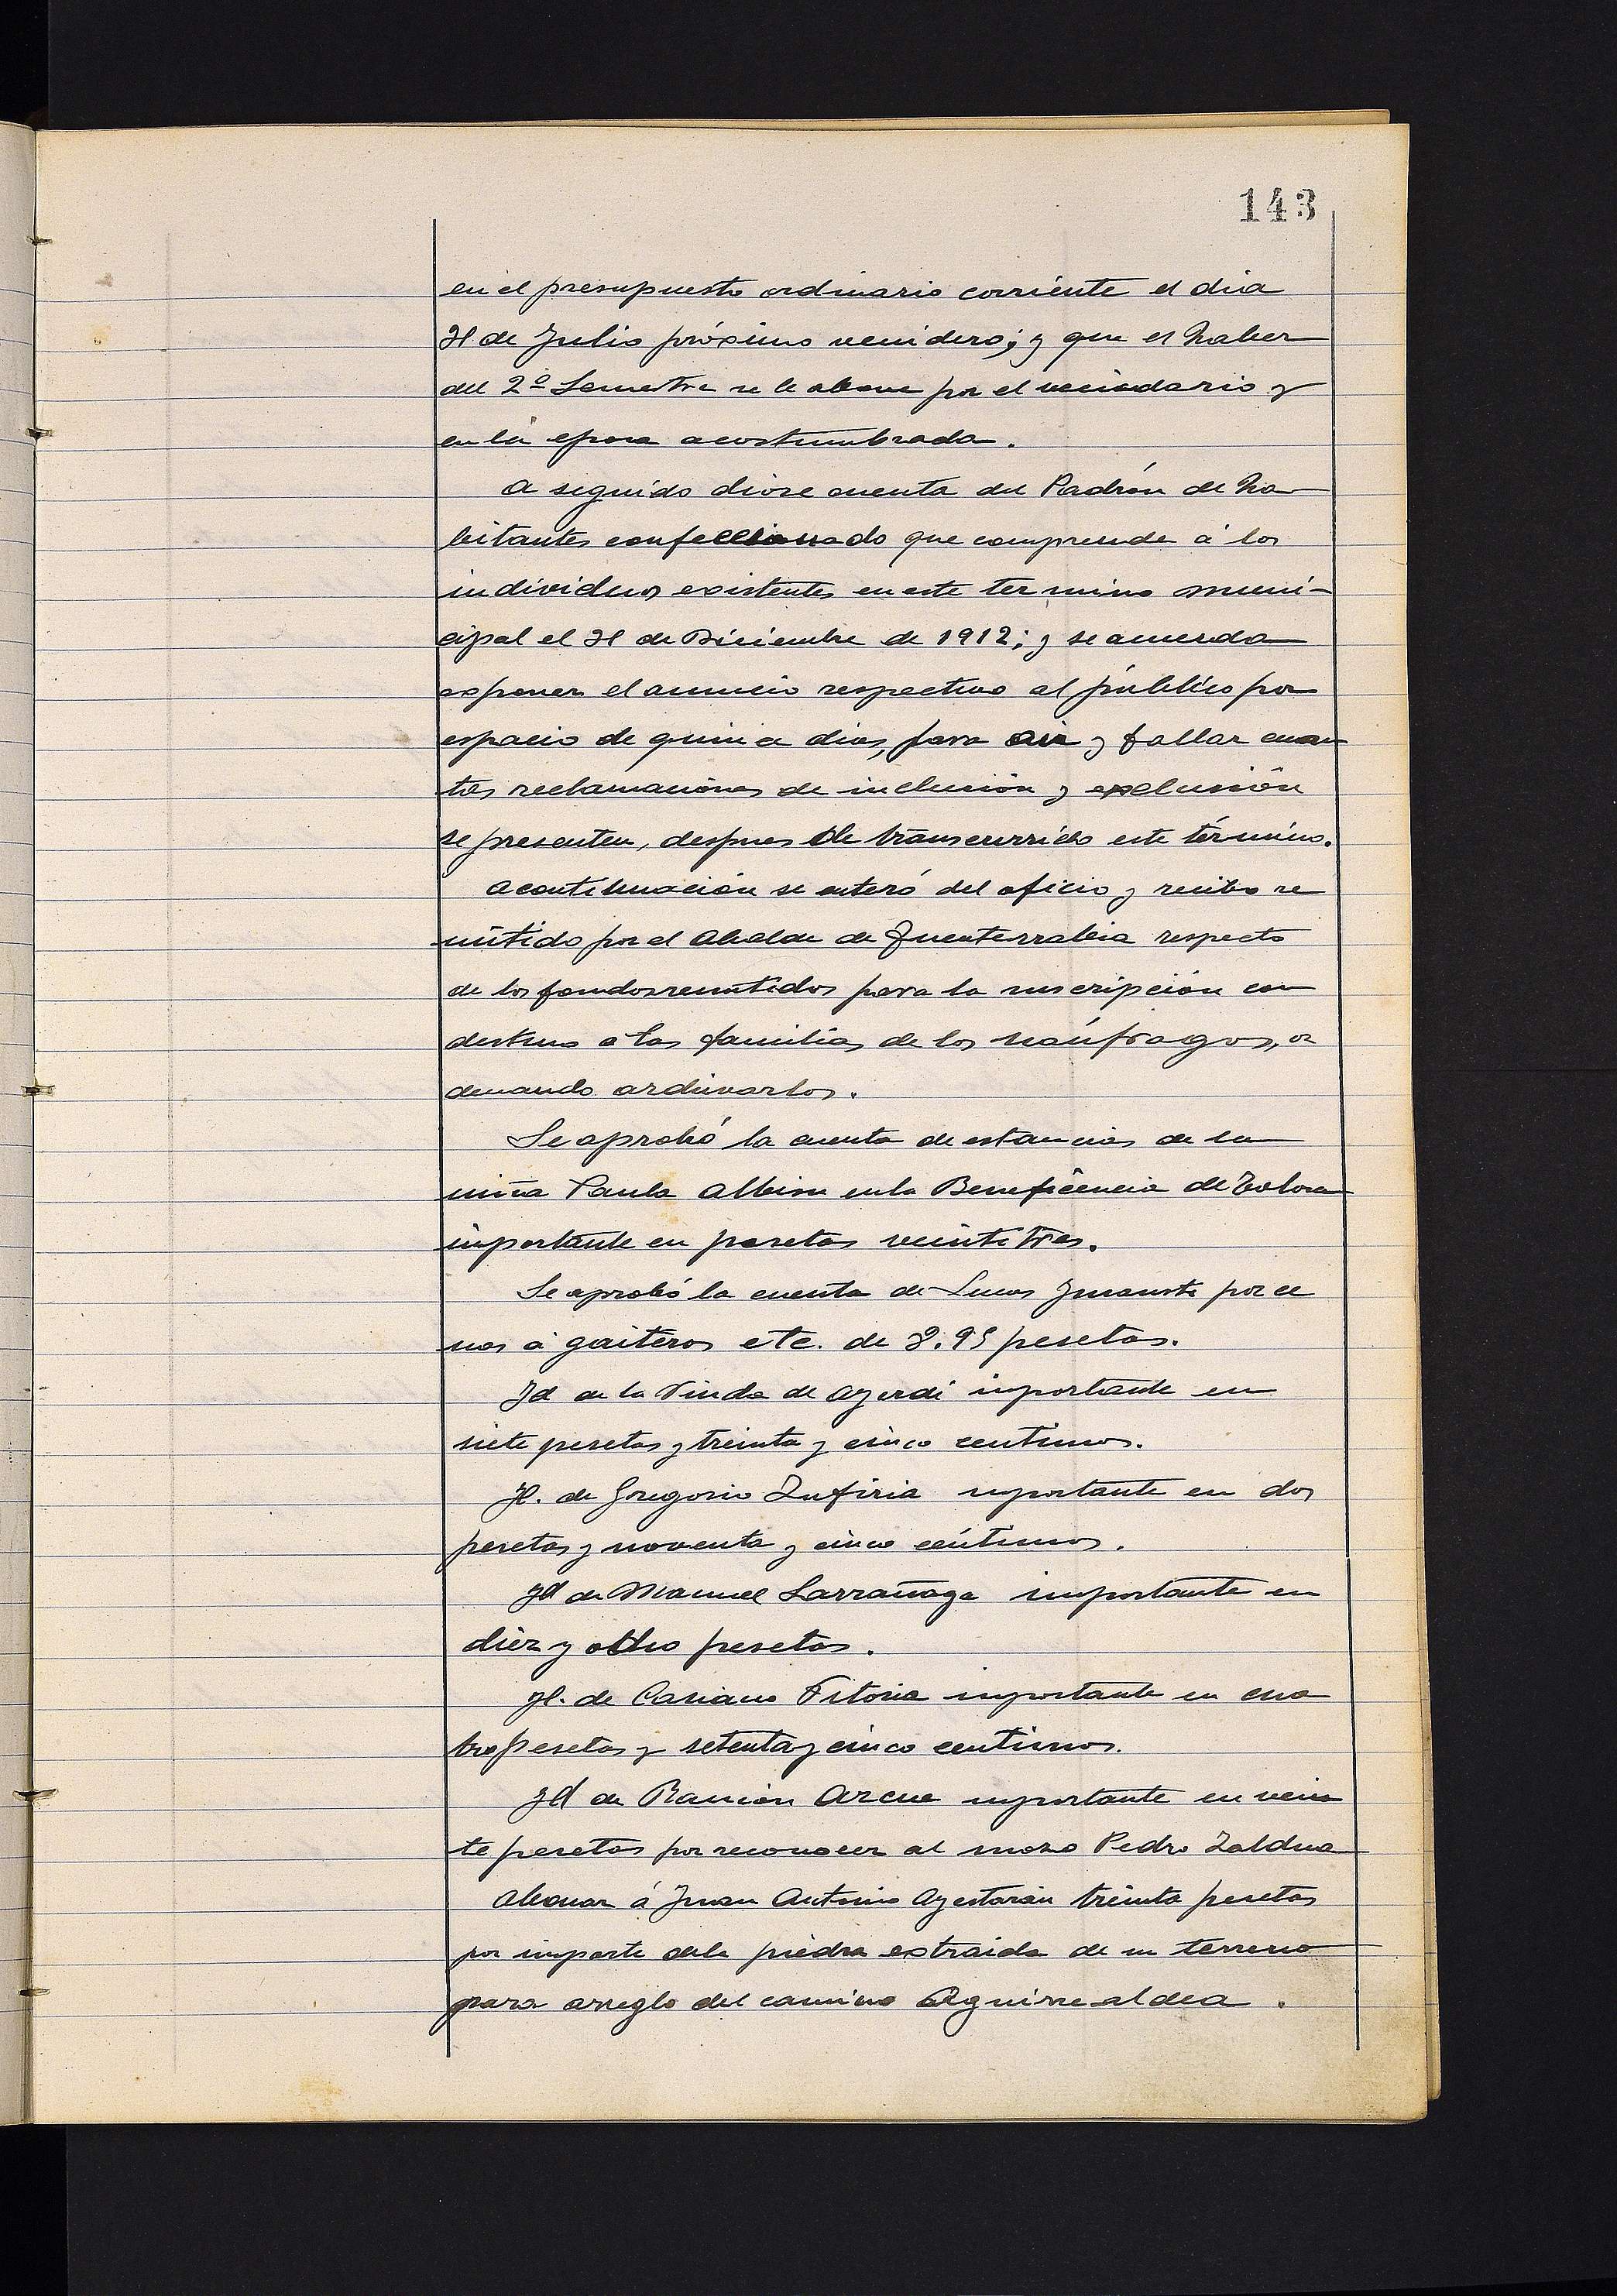 143
en el presupuesto ordinario corriente el dia
31 de Julio próximo venidero; y que el haber
del 2º Semestre se le abone por el vecindario y
en la epoca acostumbrada.
A seguido diose cuenta del Padrón de ha
bitantes confeccionado que comprende á los
individuos existentes en este termino muni-
cipal el 31 de Diciembre de 1912; y se acuerda
exponer el anuncio respectivo al público por
espacio de quince dias, para oir y fallar cuan
tas reclamaciones de inclusión y exclusión
se presenten, despues de transcurrido este término.
A continuación se enteró del oficio y recibo re
mitido por el Alcalde de Fuenterrabia respecto
de los fondos remitidos para la suscripción con
destino a las familias de los naúfragos, or
denando archivarlos.
Se aprobó la cuenta de estancias de la
niña Paula Albisu en la Beneficencia de Tolosa
importante en pesetas veintitres.
Se aprobó la cuenta de Lucas por ce
nas á gaiteros etc. de pesetas.
Id de la Viuda de Ayerdi importante en
siete pesetas y treinta y cinco centimos.
Id. de Gregorio Zufiria importante en dos
pesetas y noventa y cinco céntimos.
Id de Manuel Larrañaga importante en
diez y ocho pesetas.
Id. de Casiano Vitoria importante en cua
tro pesetas y setenta y cinco centimos.
Id de Ramón Azcue importante en vein
te pesetas por reconocer al mozo Pedro Zaldua
Abonar á Juan Antonio Ayestarán treinta pesetas
por importe de la piedra extraida de su terreno
para arreglo del camino Aguirre-aldea.